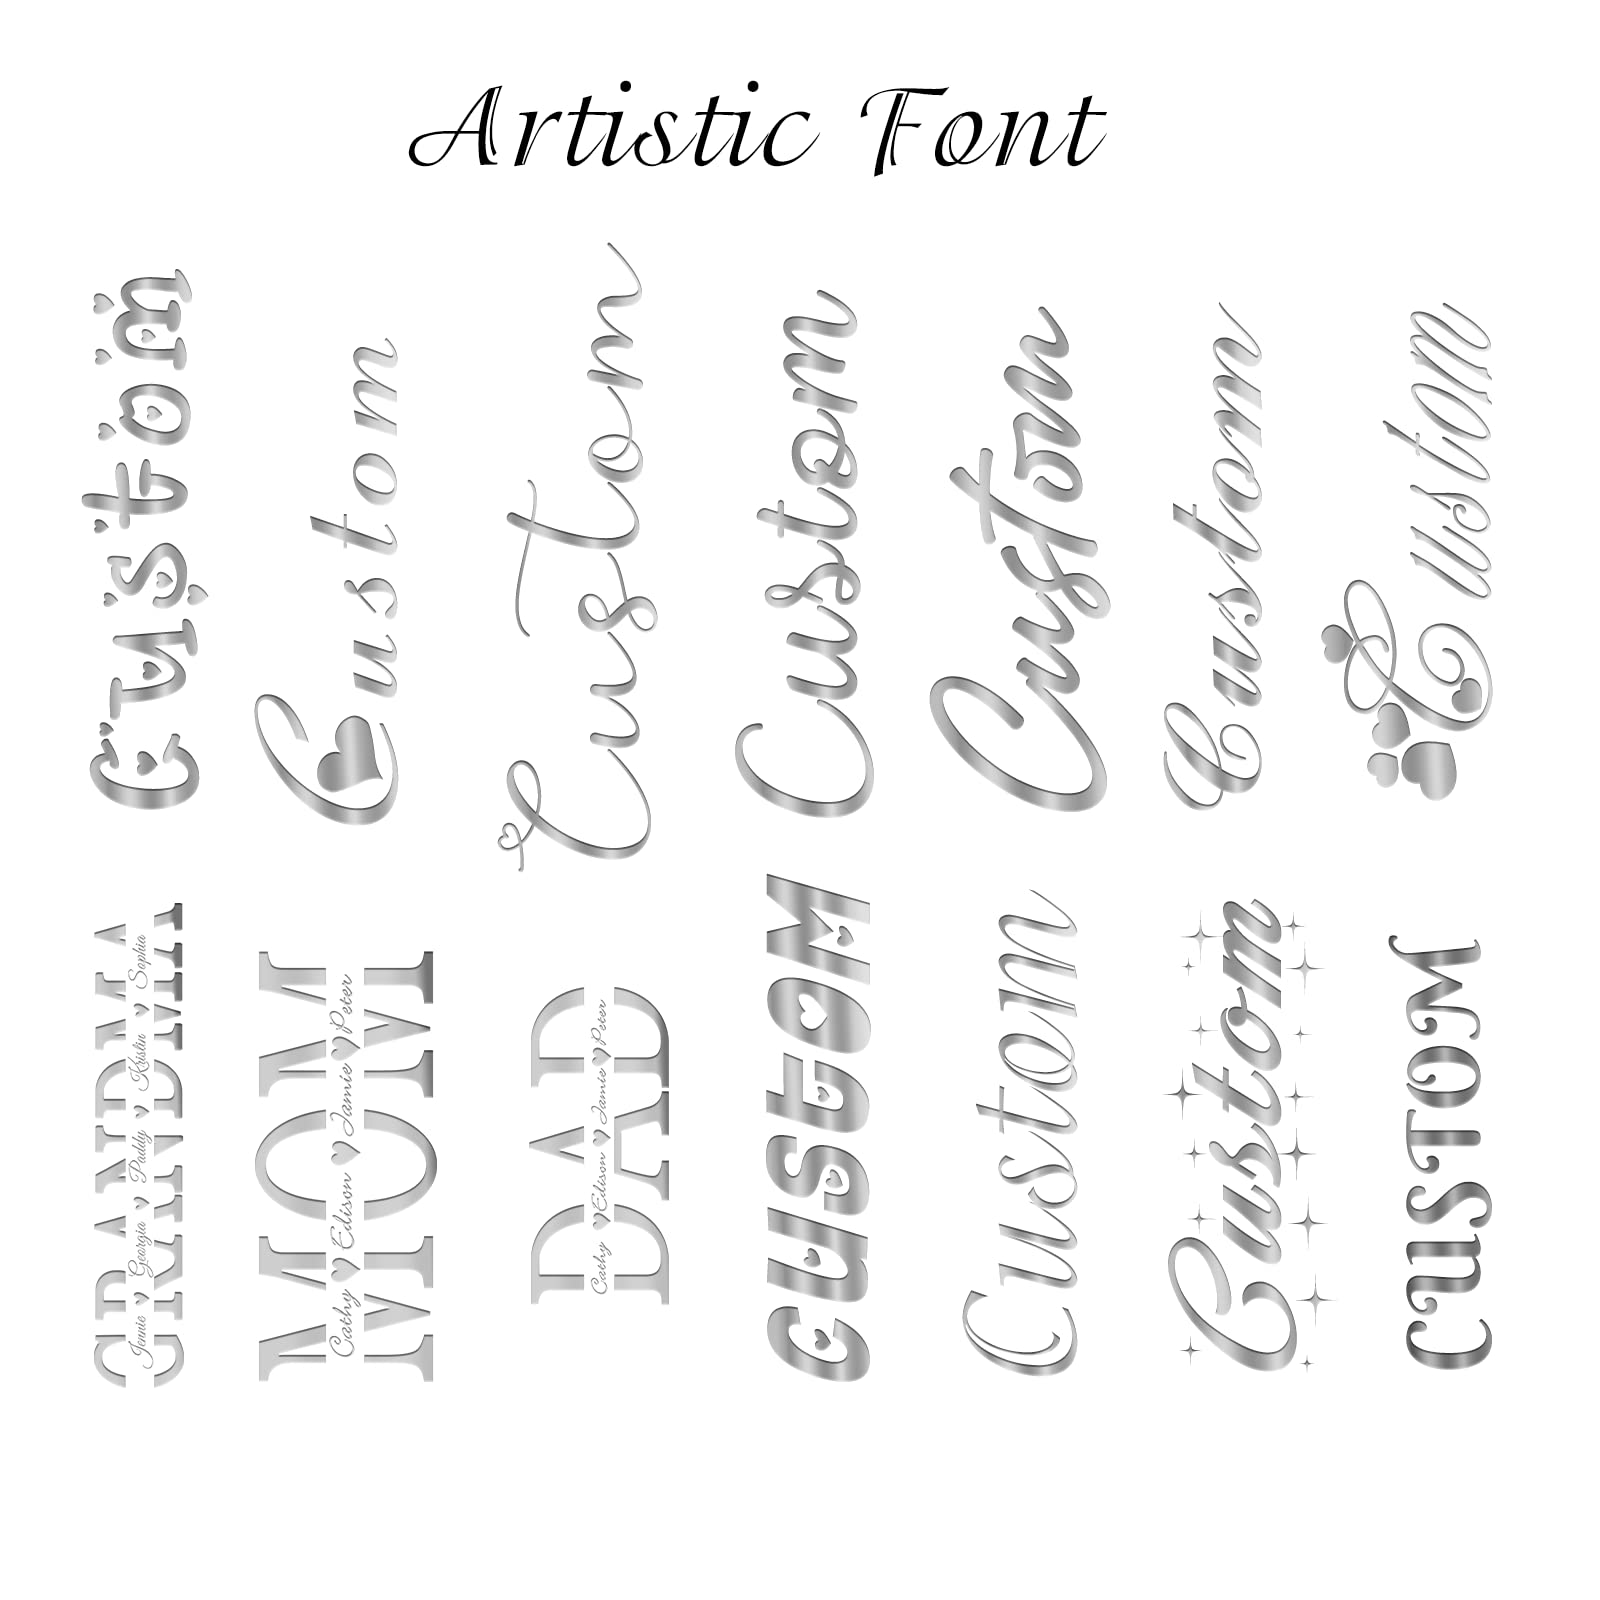 Artistic Font
Custom
Custom
Custom
Custom
Custom
Custom
Custom
GRANDMA
Jennie Georgia Paddy Kristin Sophia
MOM
Cathy Edison Jamie Peter
DAD
Cathy Edison Jamie Peter
CUSTOM
Custom
Custom
CUSTOM